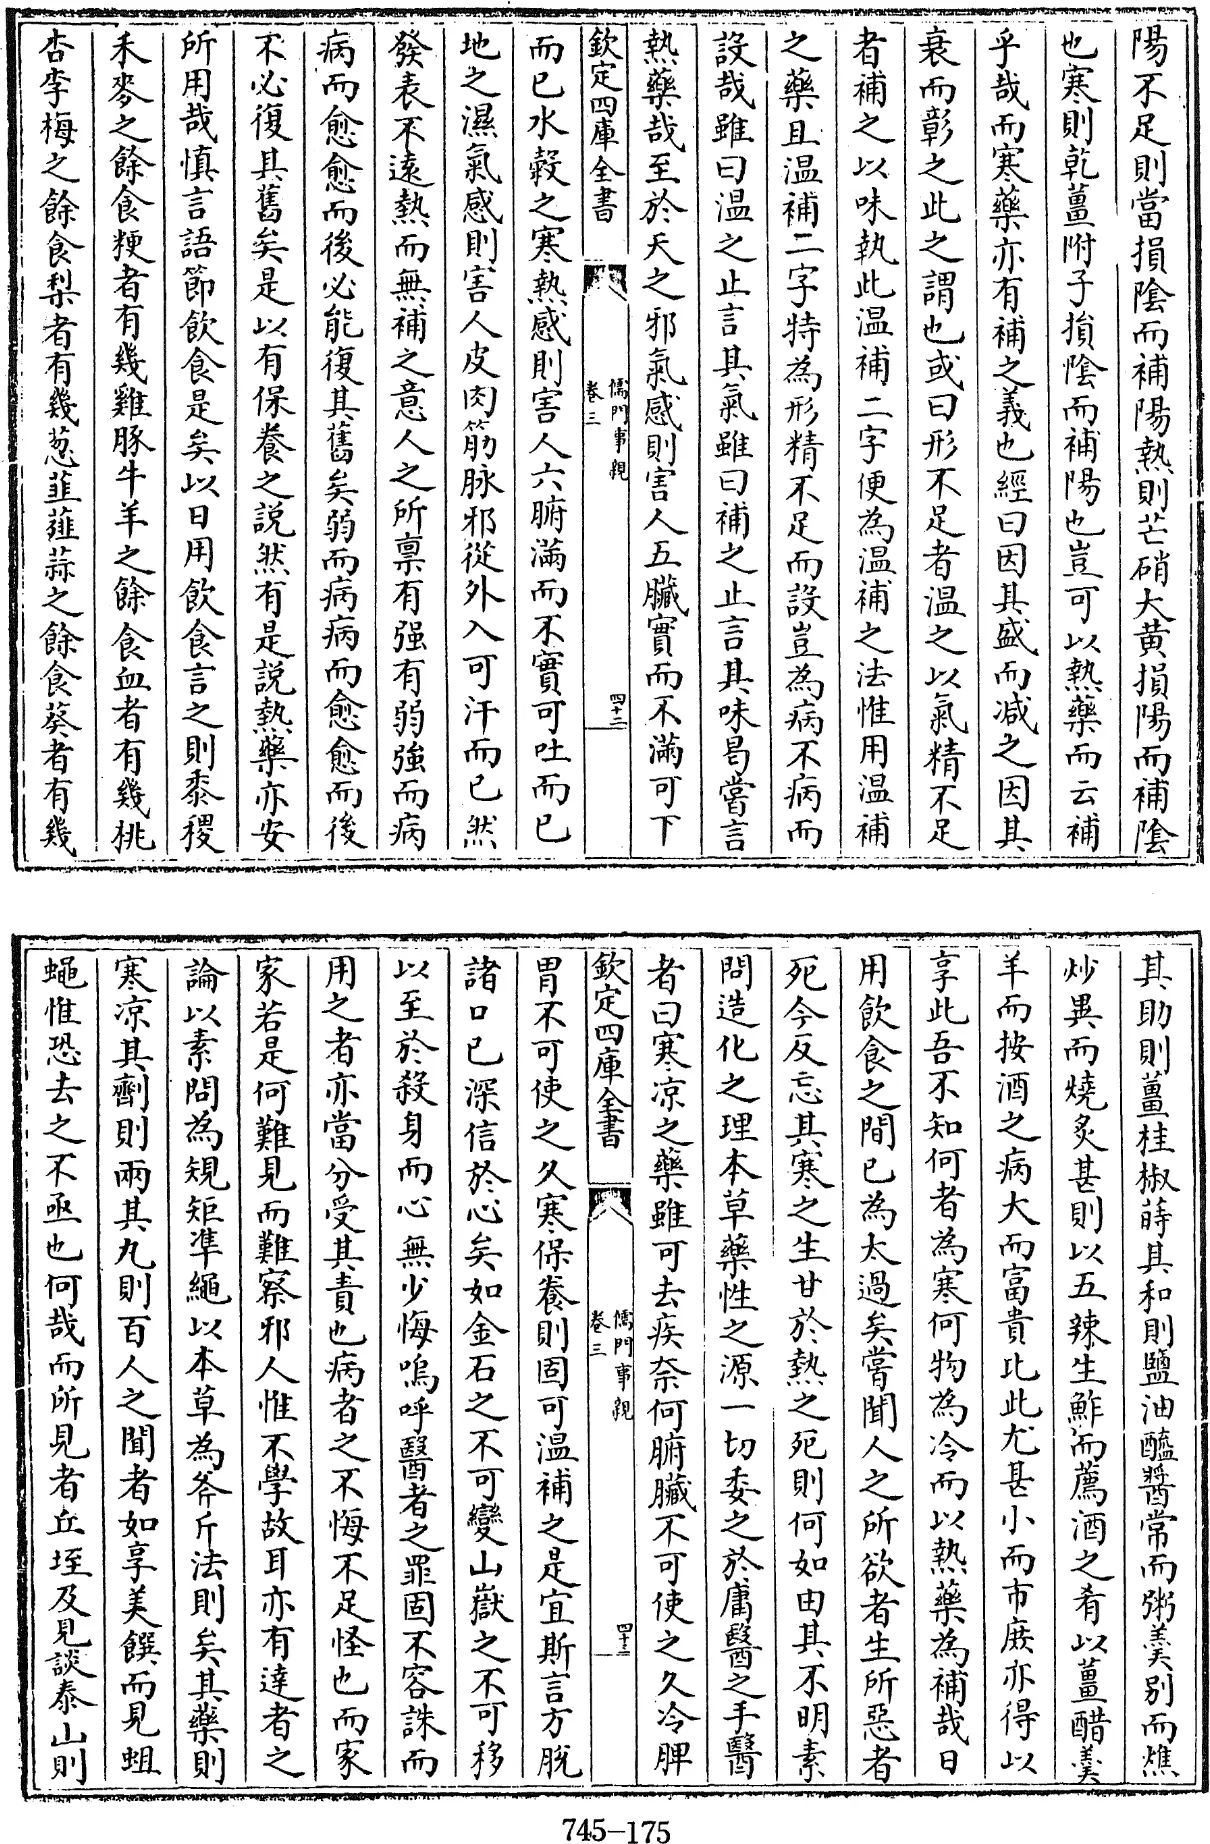 陽不足則當損陰而補陽熱則芒硝大黄損陽而補陰
也寒則乾薑附子損陰而補陽也豈可以熱藥而云補
乎哉而寒藥亦有補之義也經曰因其盛而減之因其
衰而彰之此之謂也或曰形不足者温之以氣精不足
者補之以味執此温補二字便為温補之法惟用温補
之藥且温補二字特為形精不足而設豈為病不病而
設哉雖曰温之止言其氣雖曰補之止言其味曷嘗言
熱藥哉至於天之邪氣感則害人五臟實而不滿可下
欽定四庫全書
儒門事親
卷三
四十二
而已水穀之寒熱感則害人六腑滿而不實可吐而已
地之濕氣感則害人皮肉筋脉邪從外入可汗而已然
發表不遠熱而無補之意人之所禀有强有弱強而病
病而愈愈而後必能復其舊矣弱而病病而愈愈而後
不必復其舊矣是以有保養之説然有是説熱藥亦安
所用哉慎言語節飲食是矣以日用飲食言之則黍稷
禾麥之餘食粳者有幾雞豚牛羊之餘食血者有幾桃
杏李梅之餘食梨者有幾葱韮薤蒜之餘食葵者有幾
其助則薑桂椒蒔其和則鹽油醯醬常而粥羮别而燋
炒異而燒炙甚則以五辣生鮓而薦酒之肴以薑醋羮
羊而按酒之病大而富貴比此尤甚小而市庶亦得以
享此吾不知何者為寒何物為冷而以熱藥為補哉日
用飲食之間已為太過矣嘗聞人之所欲者生所惡者
死今反忘其寒之生甘於熱之死則何如由其不明素
問造化之理本草藥性之源一切委之於庸醫之手醫
者曰寒凉之藥雖可去疾奈何腑臟不可使之久冷脾
欽定四庫全書
儒門事親
卷三
四十三
胃不可使之久寒保養則固可温補之是宜斯言方脱
諸口已深信於心矣如金石之不可變山嶽之不可移
以至於殺身而心無少悔嗚呼醫者之罪固不容誅而
用之者亦當分受其責也病者之不悔不足怪也而家
家若是何難見而難察邪人惟不學故耳亦有達者之
論以素問為規矩凖繩以本草為斧斤法則矣其藥則
寒凉其劑則兩其丸則百人之聞者如享美饌而見蛆
蠅惟恐去之不亟也何哉而所見者丘垤及見談泰山則
745-175